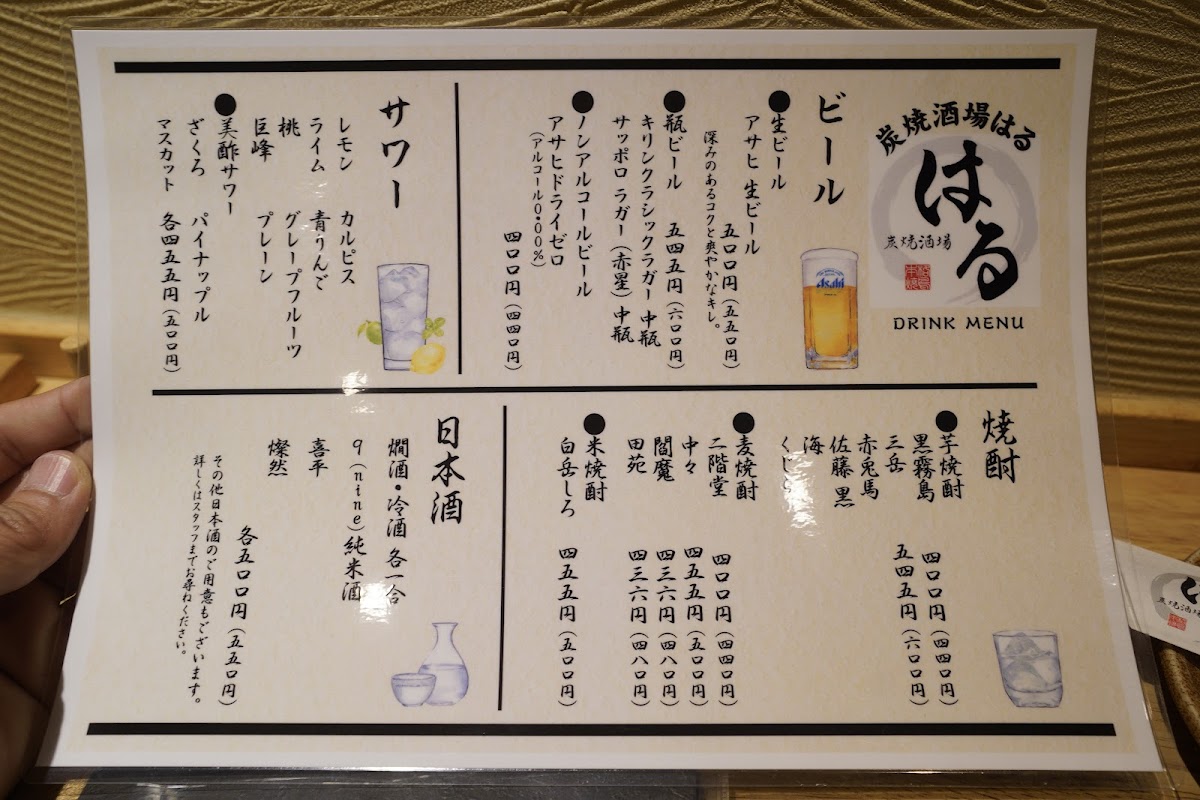 炭焼酒場はる
はる
炭焼酒場
DRINK MENU
ビール
●生ビール
アサヒ 生ビール
五〇〇円(五五〇円)
深みのあるコクと爽やかなキレ。
Asahi
●瓶ビール 五四五円(六〇〇円)
キリンクラシックラガー 中瓶
サッポロ ラガー(赤星)中瓶
●ノンアルコールビール
アサヒドライゼロ
(アルコール0.00%)
四〇〇円(四四〇円)
サワー
レモン カルピス
ライム 青りんご
桃 グレープフルーツ
巨峰 プレーン
●美酢サワー
ざくろ パイナップル
マスカット 各四五五円(五〇〇円)
焼酎
●芋焼酎
黒霧島 四〇〇円(四四〇円)
三岳 五四五円(六〇〇円)
赤兎馬
佐藤 黒
海
●麦焼酎
二階堂 四〇〇円(四四〇円)
中々 四五五円(五〇〇円)
閻魔 四三六円(四八〇円)
田苑 四三六円(四八〇円)
●米焼酎
白岳しろ 四五五円(五〇〇円)
日本酒
燗酒・冷酒 各一合
9(nine)純米酒
喜平
燦然
各五〇〇円(五五〇円)
その他日本酒のご用意もございます。
詳しくはスタッフまでお尋ねください。
炭焼酒場